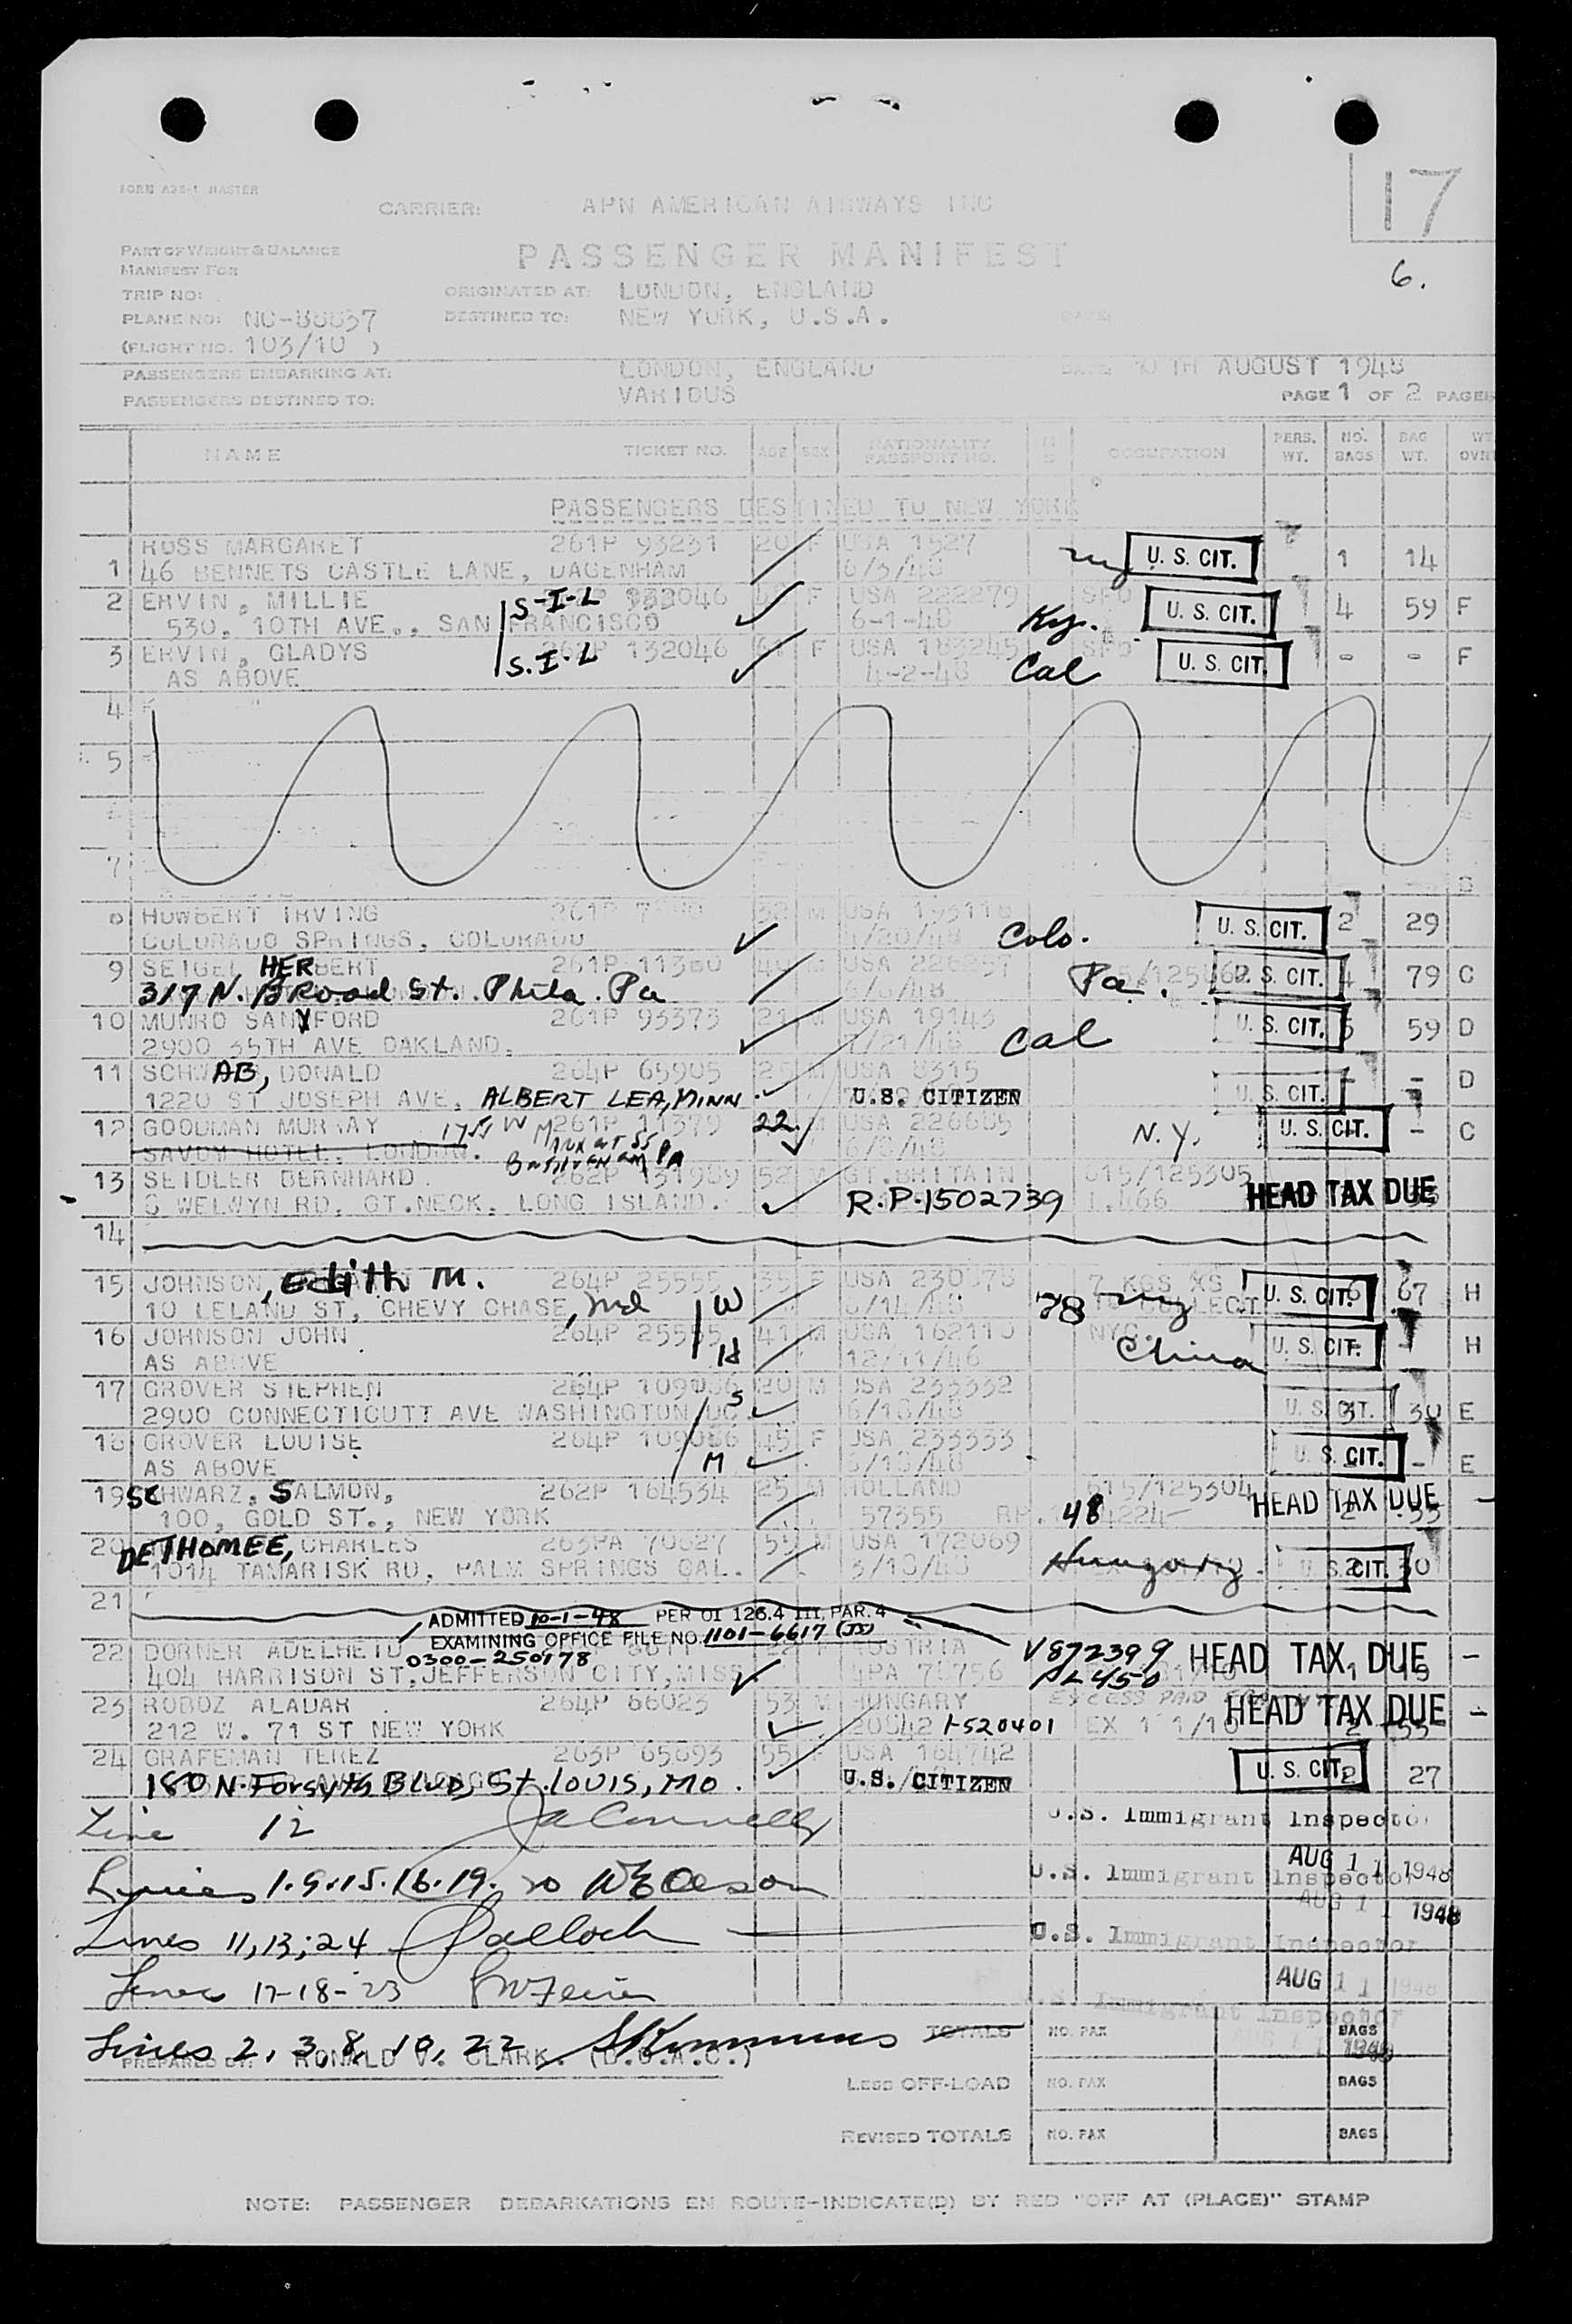 17
FORM A28-1 MASTER
CARRIER: APN AMERICAN AIRWAYS INC
PART OF WEIGHT & BALANCE
MANIFEST FOR
PASSENGER MANIFEST
6.
TRIP NO:
ORIGINATED AT: LONDON, ENGLAND
PLANE NO:
DESTINED TO: NEW YORK, U.S.A.
DATE
(FLIGHT NO. 103/10 )
PASSENGERS EMBARKING AT: LONDON, ENGLAND DATE TH AUGUST 1948
PASSENGERS DESTINED TO: VARIOUS PAGE 1 OF 2 PAGES
NAME TICKET NO. AGE SEX NATIONALITY PASSPORT NO. OCCUPATION PERS. WT. NO. BAGS BAG WT. WT. OVN
PASSENGERS DESTINED TO NEW YORK
ROSS MARGARET 261P 93231 20 F USA 1527
1 46 BENNETS CASTLE LANE, DAGENHAM 6/3/48 NY U. S. CIT. 1 14
2 ERVIN, MILLIE S-I-L 132046 F USA 222279 SFO U. S. CIT. 4 59 F
530, 10TH AVE., SAN FRANCISCO 6-1-48 Ky.
3 ERVIN, GLADYS S.I-L 262P 132046 61 F USA 183245 SFO U. S. CIT. - - F
AS ABOVE 4-2-48 Cal
4
5
7
8 HOWBERT IRVING 261P 32 M USA U. S. CIT. 2 29
COLORADO SPRINGS, COLORADO /20/48 Colo.
9 SEIGEL HERBERT 261P 11380 M USA U. S. CIT. 79 C
317 N. Broad St. Phila. Pa Pa.
10 MUNRO SANYFORD 261P 93373 21 M USA 19143 U. S. CIT. 59 D
2900 35TH AVE OAKLAND. /21/48 Cal
11 SCHWAB, DONALD 264P 65905 M USA 8315 U. S. CIT. - D
1220 ST JOSEPH AVE, ALBERT LEA, MINN. U.S. CITIZEN
12 GOODMAN MURRAY 261P 11379 22 M USA 226685 N.Y. U. S. CIT. - C
SAVOY HOTEL, LONDON.
13 SEIDLER BERNHARD. 262P 131989 52 M GT.BRITAIN 615/125305
WELWYN RD, GT.NECK, LONG ISLAND. R.P.1502739 1.466 HEAD TAX DUE
14
15 JOHNSON, Edith M. 264P 25555 35 F USA 7 KGS XS U. S. CIT. 67 H
10 LELAND ST, CHEVY CHASE, Md W 6/14/48 78 NY COLLECT
16 JOHNSON JOHN 264P 25555 41 M USA NYC U. S. CIT. - H
AS ABOVE H 12/11/46 China
17 GROVER STEPHEN 264P 109086 20 M USA 233332
2900 CONNECTICUTT AVE WASHINGTON DC. S 6/18/48 U. S. CIT. 3 30 E
18 GROVER LOUISE 264P 109086 45 F USA 233333 U. S. CIT. -
AS ABOVE M /18/48 E
19 SCHWARZ, SALMON, 262P 164534 25 M HOLLAND 615/125304 HEAD TAX DUE -
100, GOLD ST., NEW YORK 57355 RP. 48 4224
20 DETHOMEE, CHARLES 263PA 70627 55 M USA 172069
1014 TAMARISK RD, PALM SPRINGS CAL. 3/18/48 Hungary. U. S. CIT. 2 30
21
ADMITTED 10-1-48 PER OI 126.4 III, PAR. 4
EXAMINING OFFICE FILE NO. 1101-6617 (JS)
0300-250178
22 DORNER ADELHEID AUSTRIA V872399 HEAD TAX DUE -
404 HARRISON ST, JEFFERSON CITY, MISS. PL450
23 ROBOZ ALADAR 264P 66023 53 M HUNGARY EXCESS PAID HEAD TAX DUE -
212 W. 71 ST NEW YORK 20542 1-520401
24 GRAFEMAN TEREZ 263P 65693 55 F USA 164742
180 N. Forsyth Blvd, St. Louis, Mo. U.S. CITIZEN U. S. CIT. 2 27
Line 12 U.S. Immigrant Inspector
AUG 11 1948
Lines 1.9.15.16.19. 20 U.S. Immigrant Inspector
AUG 11 1948
Lines 11, 13, 24 U.S. Immigrant Inspector
AUG 11 1948
Lines 17-18-23 U.S. Immigrant Inspector
AUG 11 1948
Lines 2, 3, 8, 10, 22
PREPARED BY: RONALD V. CLARK. (B.O.A.C.) TOTALS NO. PAX BAGS
LESS OFF-LOAD NO. PAX BAGS
REVISED TOTALS NO. PAX BAGS
NOTE: PASSENGER DEBARKATIONS EN ROUTE-INDICATE(D) BY RED "OFF AT (PLACE)" STAMP